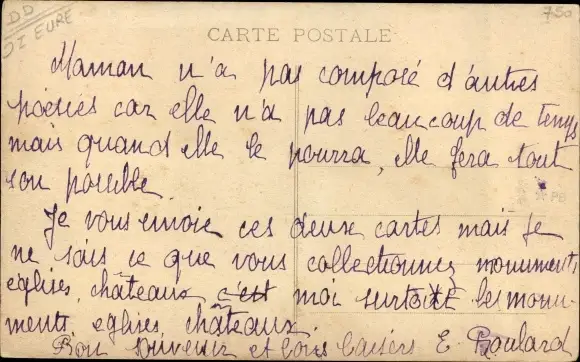 DD
27 EURE
750
CARTE POSTALE
Maman n'a pas composé d'autres
poésies car elle n'a pas beaucoup de temps
mais quand elle le pourra, elle fera tout
son possible.
Je vous envoie ces deux cartes mais je
ne sais ce que vous collectionnez monuments
eglises, châteaux c'est moi surtout les monu-
ments, eglises, châteaux.
Bon souvenir et bons baisers E. Boulard